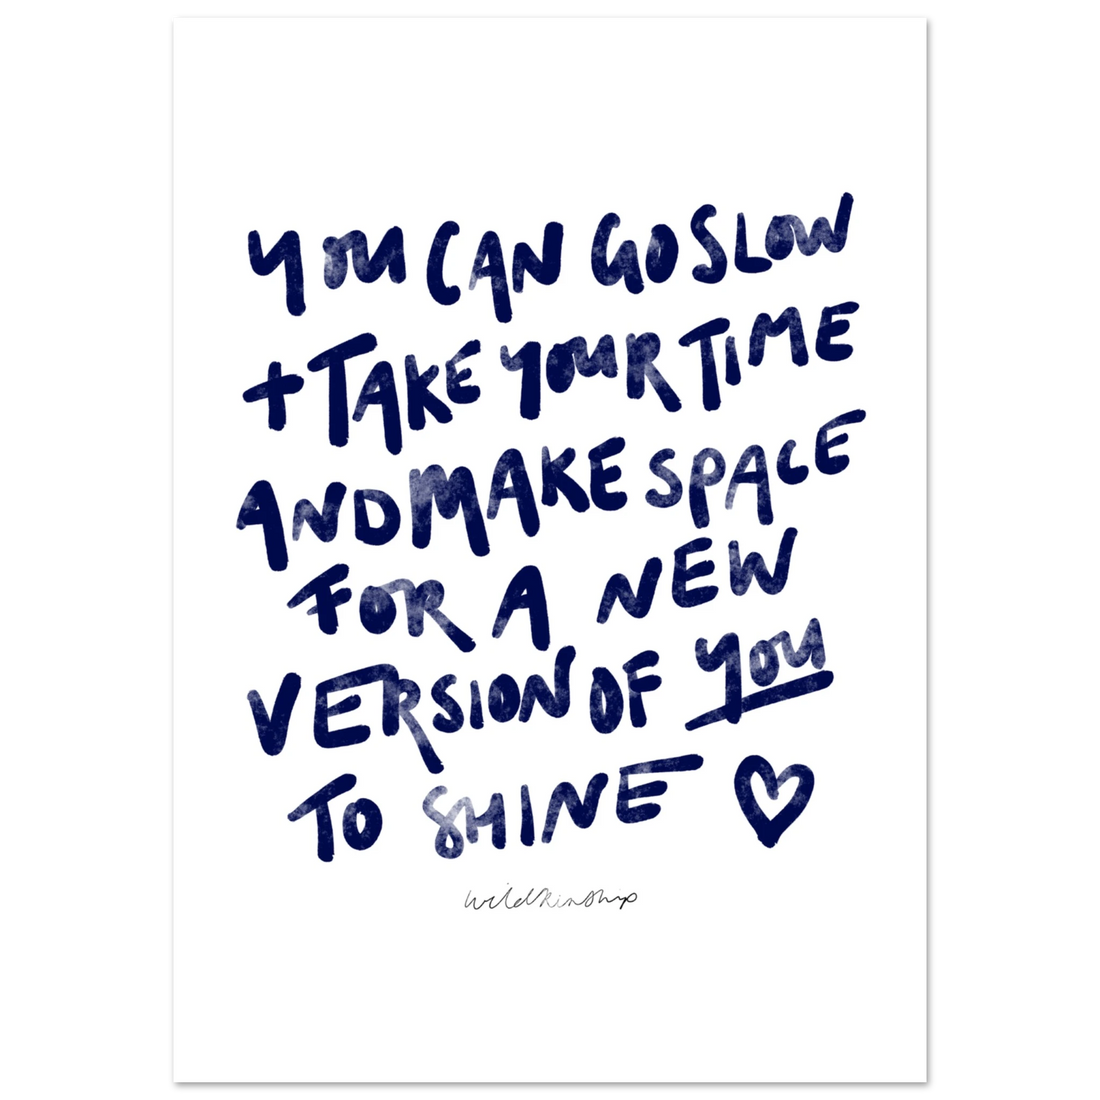 YOU CAN GO SLOW
+ TAKE YOUR TIME
AND MAKE SPACE
FOR A NEW
VERSION OF YOU
TO SHINE
wildkinship